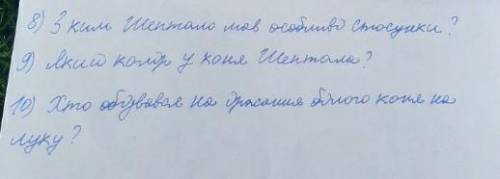 8) З ким Шептало мав особливі стосунки?
9) Який колір у коня Шептала?
10) Хто обзивався на іржання білого коня на
луку?